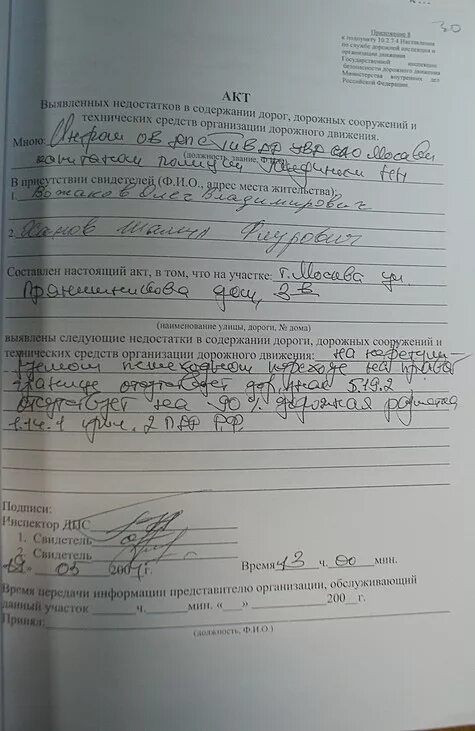 30
Приложение 8
к подпункту 10.2.7.4 Наставления
по службе дорожной инспекции и
организации движения
Государственной инспекции
безопасности дорожного движения
Министерства внутренних дел
Российской Федерации
АКТ
Выявленных недостатков в содержании дорог, дорожных сооружений и
технических средств организации дорожного движения.
Мною:
(должность, звание, Ф.И.О.)
капитаном полиции
В присутствии свидетелей (Ф.И.О., адрес места жительства):
1. Божаков Олег Владимирович
2. Шамил Флурович
Составлен настоящий акт, в том, что на участке: г. Москва ул.
Прянишникова дом, 3 в
(наименование улицы, дороги, № дома)
выявлены следующие недостатки в содержании дороги, дорожных сооружений и
технических средств организации дорожного движения: на
пешеходном переходе на
отсутствует дор. знак 5.19.2
отсутствует на 90% дорожная разметка
1.14.1 прил. 2 ПДД Р.Ф.
Подписи:
Инспектор ДПС
1. Свидетель
2. Свидетель
03 200 г.
Время 13 ч. 00 мин.
Время передачи информации представителю организации, обслуживающий
данный участок ч. мин. « » 200 г.
Принял:
(должность, Ф.И.О.)